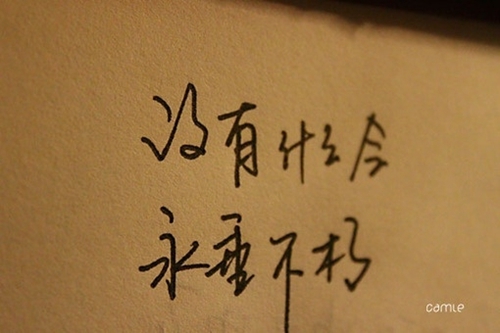 没有什么会
永垂不朽
camie